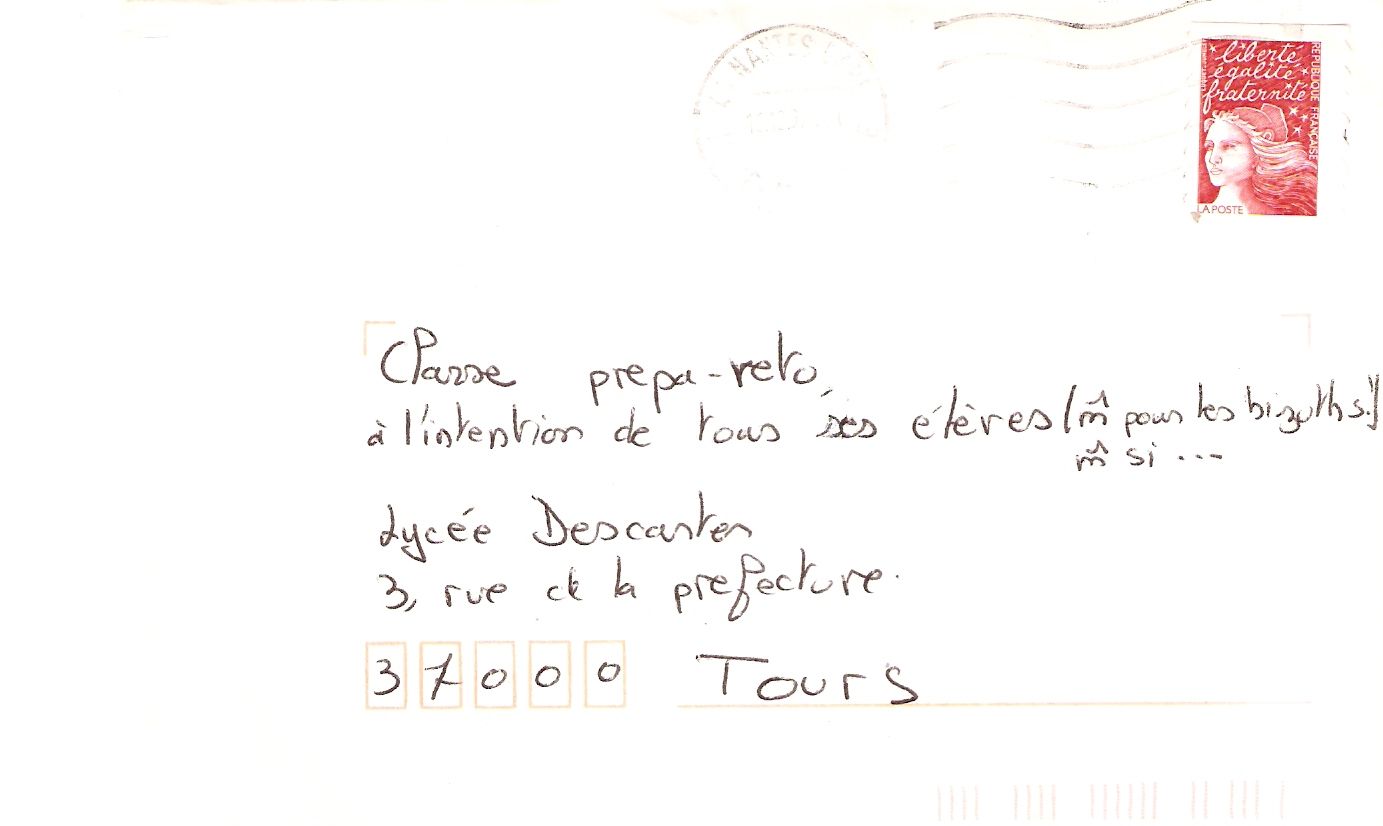 NANTES
liberté
égalité
fraternité
REPUBLIQUE FRANÇAISE
LA POSTE
Classe prepa-veto,
à l'intention de tous ses élèves (m̂ pour les bizuths!)
m̂ si ...
Lycée Descartes
3, rue de la prefecture.
37000 Tours